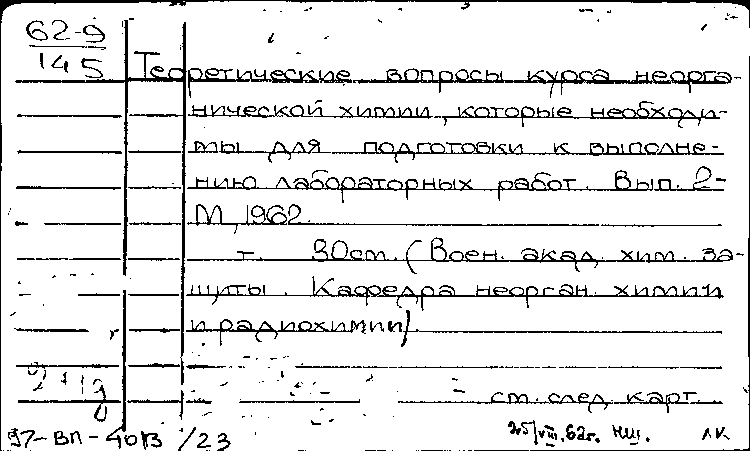 62-9
145
Теоретические вопросы курса неорга-
нической химии, которые необходи-
мы для подготовки к выполне-
нию лабораторных работ. Вып. 2-
М, 1962.
т. 30см. (Воен. акад. хим. за-
щиты. Кафедра неорган. химии
и радиохимии).
см. след. карт.
97-ВП-4013/23
25/VIII.62г. НШ. ЛК